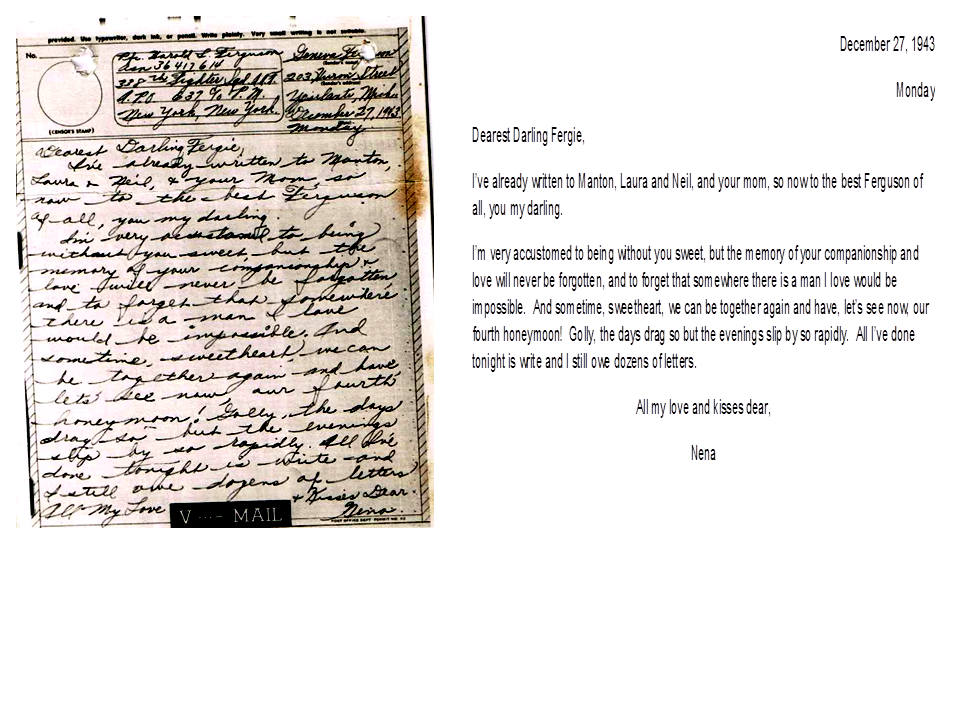 provided. Use typewriter, dark ink, or pencil. Write plainly. Very small writing is not suitable.
No.
Pfc. Harold L. Ferguson
Asn 36417614
338th Fighter Sqd. A.P.
A.P.O 637 c/o P.M.
New York, New York.
Geneva Ferguson
(Sender's name)
203 Huron Street
(Sender's address)
Ypsilanti, Mich.
December 27, 1943
Monday
(CENSOR'S STAMP)
Dearest Darling Fergie,
I've already written to Manton,
Laura & Neil, & your Mom, so
now to the best Ferguson
of all, you my darling.
I'm very accustomed to being
without you sweet, but the
memory of your companionship &
love will never be forgotten,
and to forget that somewhere
there is a man I love
would be impossible. And
sometime, sweetheart, we can
be together again and have,
let's see now, our fourth
honeymoon! Golly, the days
drag so but the evenings
slip by so rapidly. All I've
done tonight is write and
I still owe dozens of letters
All My Love & Kisses Dear.
Nena.
V ···— MAIL
POST OFFICE DEPT. PERMIT NO.
December 27, 1943
Monday
Dearest Darling Fergie,
I've already written to Manton, Laura and Neil, and your mom, so now to the best Ferguson of
all, you my darling.
I'm very accustomed to being without you sweet, but the memory of your companionship and
love will never be forgotten, and to forget that somewhere there is a man I love would be
impossible. And sometime, sweetheart, we can be together again and have, let's see now, our
fourth honeymoon! Golly, the days drag so but the evenings slip by so rapidly. All I've done
tonight is write and I still owe dozens of letters.
All my love and kisses dear,
Nena